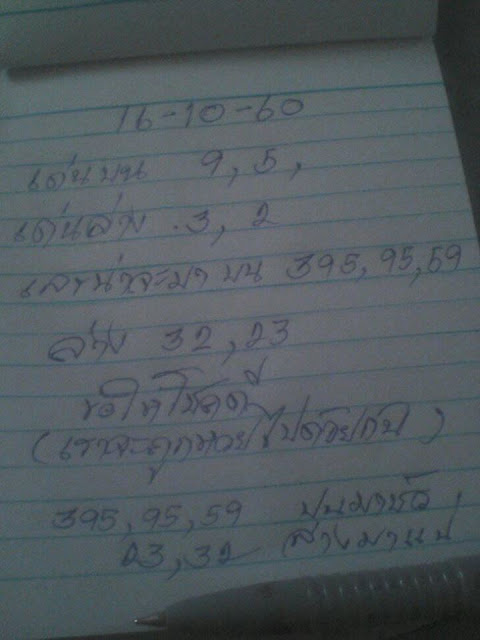 16-10-60
เด่นบน 9, 5,
เด่นล่าง . 3, 2
เลขน่าจะมา บน 395, 95, 59
ล่าง 32, 23
ขอให้โชคดี
(เราจะถูกหวยไปด้วยกัน)
395, 95, 59 บนมาชัว
23, 32 ล่างมาแน่